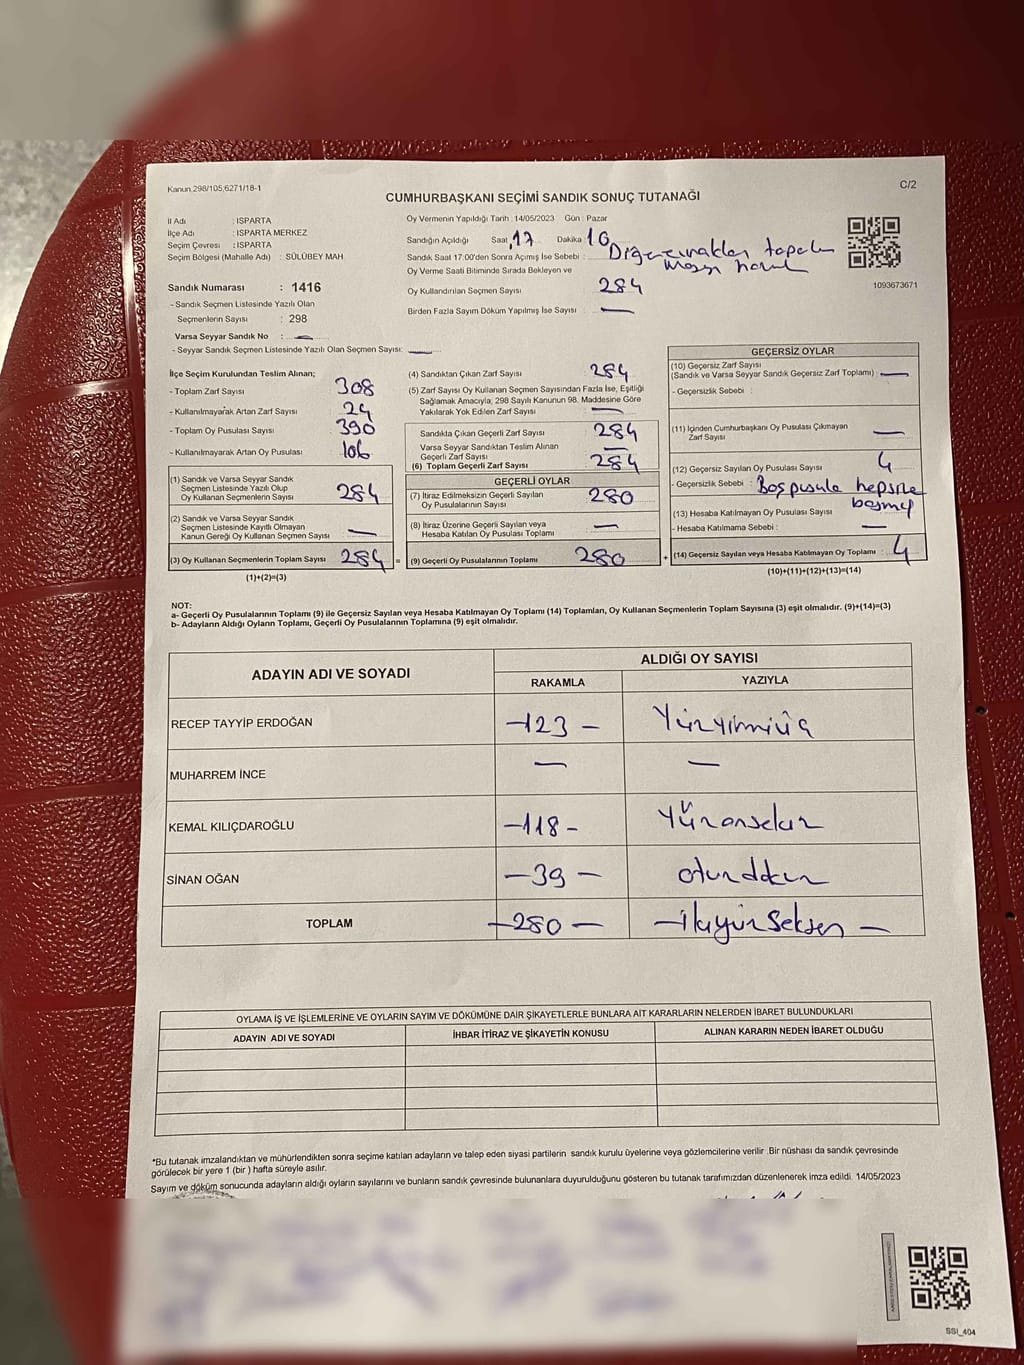 Kanun 298/105,6271/18-1
C/2
CUMHURBAŞKANI SEÇİMİ SANDIK SONUÇ TUTANAĞI
İl Adı : ISPARTA
İlçe Adı : ISPARTA MERKEZ
Seçim Çevresi : ISPARTA
Seçim Bölgesi (Mahalle Adı) : SÜLÜBEY MAH
Sandık Numarası : 1416
- Sandık Seçmen Listesinde Yazılı Olan
Seçmenlerin Sayısı : 298
Varsa Seyyar Sandık No : —
- Seyyar Sandık Seçmen Listesinde Yazılı Olan Seçmen Sayısı: —
Oy Vermenin Yapıldığı Tarih : 14/05/2023 Gün : Pazar
Sandığın Açıldığı Saat 17 Dakika 10
Sandık Saat 17:00'den Sonra Açımış İse Sebebi :
Oy Verme Saati Bitiminde Sırada Bekleyen ve
Oy Kullandırılan Seçmen Sayısı 284
Birden Fazla Sayım Döküm Yapılmış İse Sayısı —
1093673671
İlçe Seçim Kurulundan Teslim Alınan;
- Toplam Zarf Sayısı 308
- Kullanılmayarak Artan Zarf Sayısı 24
- Toplam Oy Pusulası Sayısı 390
- Kullanılmayarak Artan Oy Pusulası 106
(1) Sandık ve Varsa Seyyar Sandık
Seçmen Listesinde Yazılı Olup
Oy Kullanan Seçmenlerin Sayısı 284
(2) Sandık ve Varsa Seyyar Sandık
Seçmen Listesinde Kayıtlı Olmayan
Kanun Gereği Oy Kullanan Seçmen Sayısı —
(3) Oy Kullanan Seçmenlerin Toplam Sayısı 284 =
(1)+(2)=(3)
(4) Sandıktan Çıkan Zarf Sayısı 284
(5) Zarf Sayısı Oy Kullanan Seçmen Sayısından Fazla İse, Eşitliği
Sağlamak Amacıyla, 298 Sayılı Kanunun 98. Maddesine Göre
Yakılarak Yok Edilen Zarf Sayısı —
Sandıkta Çıkan Geçerli Zarf Sayısı 284
Varsa Seyyar Sandıktan Teslim Alınan
Geçerli Zarf Sayısı —
(6) Toplam Geçerli Zarf Sayısı 284
GEÇERLİ OYLAR
(7) İtiraz Edilmeksizin Geçerli Sayılan
Oy Pusulalarının Sayısı 280
(8) İtiraz Üzerine Geçerli Sayılan veya
Hesaba Katılan Oy Pusulası Toplamı —
(9) Geçerli Oy Pusulalarının Toplamı 280 +
GEÇERSİZ OYLAR
(10) Geçersiz Zarf Sayısı
(Sandık ve Varsa Seyyar Sandık Geçersiz Zarf Toplamı) —
- Geçersizlik Sebebi :
(11) İçinden Cumhurbaşkanı Oy Pusulası Çıkmayan
Zarf Sayısı —
(12) Geçersiz Sayılan Oy Pusulası Sayısı 4
- Geçersizlik Sebebi : Boş pusula hepsine
basmış
(13) Hesaba Katılmayan Oy Pusulası Sayısı —
- Hesaba Katılmama Sebebi :
(14) Geçersiz Sayılan veya Hesaba Katılmayan Oy Toplamı : 4
(10)+(11)+(12)+(13)=(14)
NOT:
a- Geçerli Oy Pusulalarının Toplamı (9) ile Geçersiz Sayılan veya Hesaba Katılmayan Oy Toplamı (14) Toplamları, Oy Kullanan Seçmenlerin Toplam Sayısına (3) eşit olmalıdır. (9)+(14)=(3)
b- Adayların Aldığı Oyların Toplamı, Geçerli Oy Pusulalarının Toplamına (9) eşit olmalıdır.
ADAYIN ADI VE SOYADI ALDIĞI OY SAYISI
RAKAMLA YAZIYLA
RECEP TAYYİP ERDOĞAN —123— Yüzyirmiüç
MUHARREM İNCE — —
KEMAL KILIÇDAROĞLU —118— Yüzonsekiz
SİNAN OĞAN —39— otuzdokuz
TOPLAM —280— —ikiyüzseksen—
OYLAMA İŞ VE İŞLEMLERİNE VE OYLARIN SAYIM VE DÖKÜMÜNE DAİR ŞİKAYETLERLE BUNLARA AİT KARARLARIN NELERDEN İBARET BULUNDUKLARI
ADAYIN ADI VE SOYADI İHBAR İTİRAZ VE ŞİKAYETİN KONUSU ALINAN KARARIN NEDEN İBARET OLDUĞU
*Bu tutanak imzalandıktan ve mühürlendikten sonra seçime katılan adayların ve talep eden siyasi partilerin sandık kurulu üyelerine veya gözlemcilerine verilir .Bir nüshası da sandık çevresinde
görülecek bir yere 1 (bir ) hafta süreyle asılır.
Sayım ve döküm sonucunda adayların aldığı oyların sayılarını ve bunların sandık çevresinde bulunanlara duyurulduğunu gösteren bu tutanak tarafımızdan düzenlenerek imza edildi. 14/05/2023
SSI_404